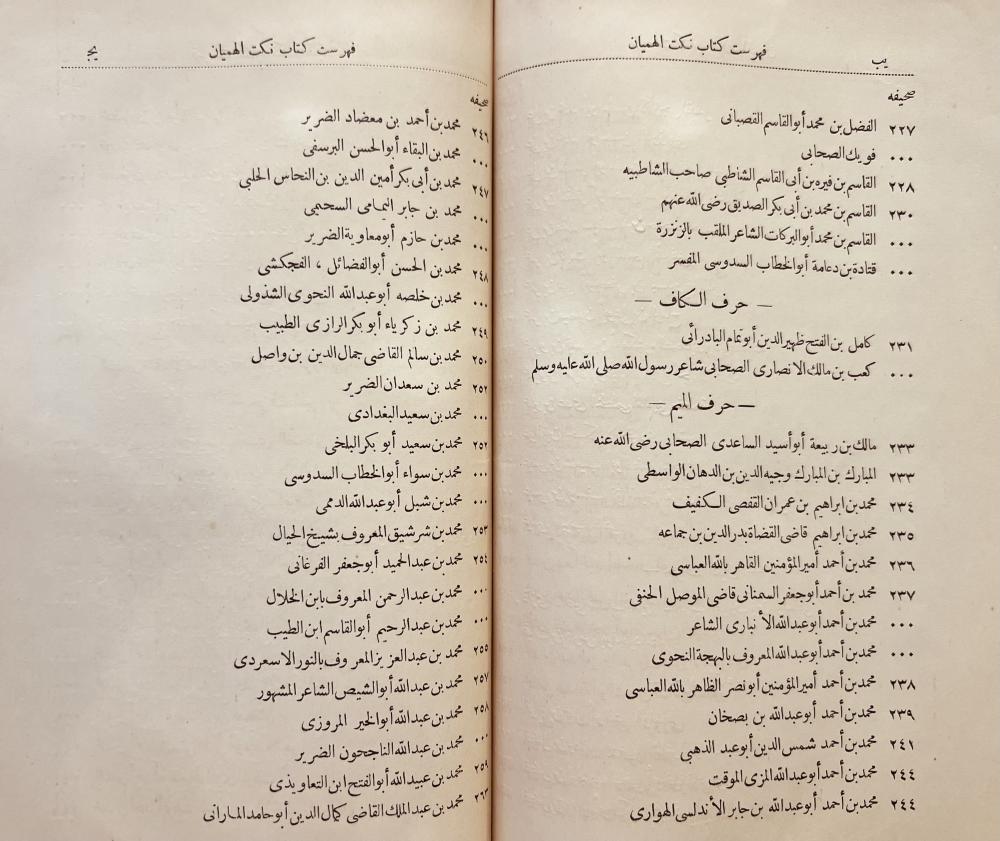 يب
فهرست كتاب نكت الهميان
صحيفه
٢٢٧ الفضل بن محمد أبو القاسم القصبانى
٠٠٠ فويك الصحابى
٢٢٨ القاسم بن فيره بن أبى القاسم الشاطبى صاحب الشاطبيه
٢٣٠ القاسم بن محمد بن أبى بكر الصديق رضى الله عنهم
٠٠٠ القاسم بن محمد أبو البركات الشاعر الملقب بالزنزرة
٠٠٠ قتادة بن دعامة أبو الخطاب السدوسى المفسر
— حرف الكاف —
٢٣١ كامل بن الفتح ظهير الدين أبو تمام البادرائى
٠٠٠ كعب بن مالك الانصارى الصحابى شاعر رسول الله صلى الله عليه وسلم
— حرف الميم —
٢٣٣ مالك بن ربيعة أبو أسيد الساعدى الصحابى رضى الله عنه
٢٣٣ المبارك بن المبارك وجيه الدين بن الدهان الواسطى
٢٣٤ محمد بن ابراهيم بن عمران القفصى الكفيف
٢٣٥ محمد بن ابراهيم قاضى القضاة بدر الدين بن جماعه
٢٣٦ محمد بن أحمد أمير المؤمنين القاهر بالله العباسى
٢٣٧ محمد بن أحمد أبو جعفر السمنانى قاضى الموصل الحنفى
٠٠٠ محمد بن أحمد أبو عبد الله الأنبارى الشاعر
٠٠٠ محمد بن أحمد أبو عبد الله المعروف بالبهجة النحوى
٢٣٨ محمد بن أحمد أمير المؤمنين أبو نصر الظاهر بالله العباسى
٢٣٩ محمد بن أحمد أبو عبد الله بن بصخان
٢٤١ محمد بن أحمد شمس الدين أبو عبد الذهبى
٢٤٤ محمد بن أحمد أبو عبد الله المزى الموقت
٢٤٤ محمد بن أحمد أبو عبد الله بن جابر الأندلسى الهوارى
يج
فهرست كتاب نكت الهميان
صحيفه
٢٤٦ محمد بن أحمد بن معضاد الضرير
٠٠٠ محمد بن البقاء أبو الحسن البرسفى
٢٤٧ محمد بن أبى بكر أمين الدين بن النحاس الحلبى
٠٠٠ محمد بن جابر اليمامى السحيمى
٠٠٠ محمد بن حازم أبو معاوية الضرير
٢٤٨ محمد بن الحسن أبو الفضائل ، الفجكشى
٠٠٠ محمد بن خلصه أبو عبد الله النحوى الشذولى
٢٤٩ محمد بن زكرياء أبو بكر الرازى الطبيب
٢٥٠ محمد بن سالم القاضى جمال الدين بن واصل
٢٥٢ محمد بن سعدان الضرير
٠٠٠ محمد بن سعيد البغدادى
٢٥٢ محمد بن سعيد أبو بكر البلخى
٠٠٠ محمد بن سواء أبو الخطاب السدوسى
٠٠٠ محمد بن شبل أبو عبد الله الدممى
٢٥٣ محمد بن شرشيق المعروف بشيخ الحيال
٢٥٤ محمد بن عبد الحميد أبو جعفر الفرغانى
٠٠٠ محمد بن عبد الرحمن المعروف بابن الخلال
٠٠٠ محمد بن عبد الرحيم أبو القاسم ابن الطيب
٢٥٥ محمد بن عبد العزيز المعروف بالنور الاسعردى
٢٥٧ محمد بن عبد الله أبو الشيص الشاعر المشهور
٢٥٨ محمد بن عبد الله أبو الخير المروزى
٠٠٠ محمد بن عبد الله الناجحون الضرير
٢٥٩ محمد بن عبيد الله أبو الفتح ابن التعاويذى
٢٦٣ محمد بن عبد الملك القاضى كمال الدين أبو حامد المارانى